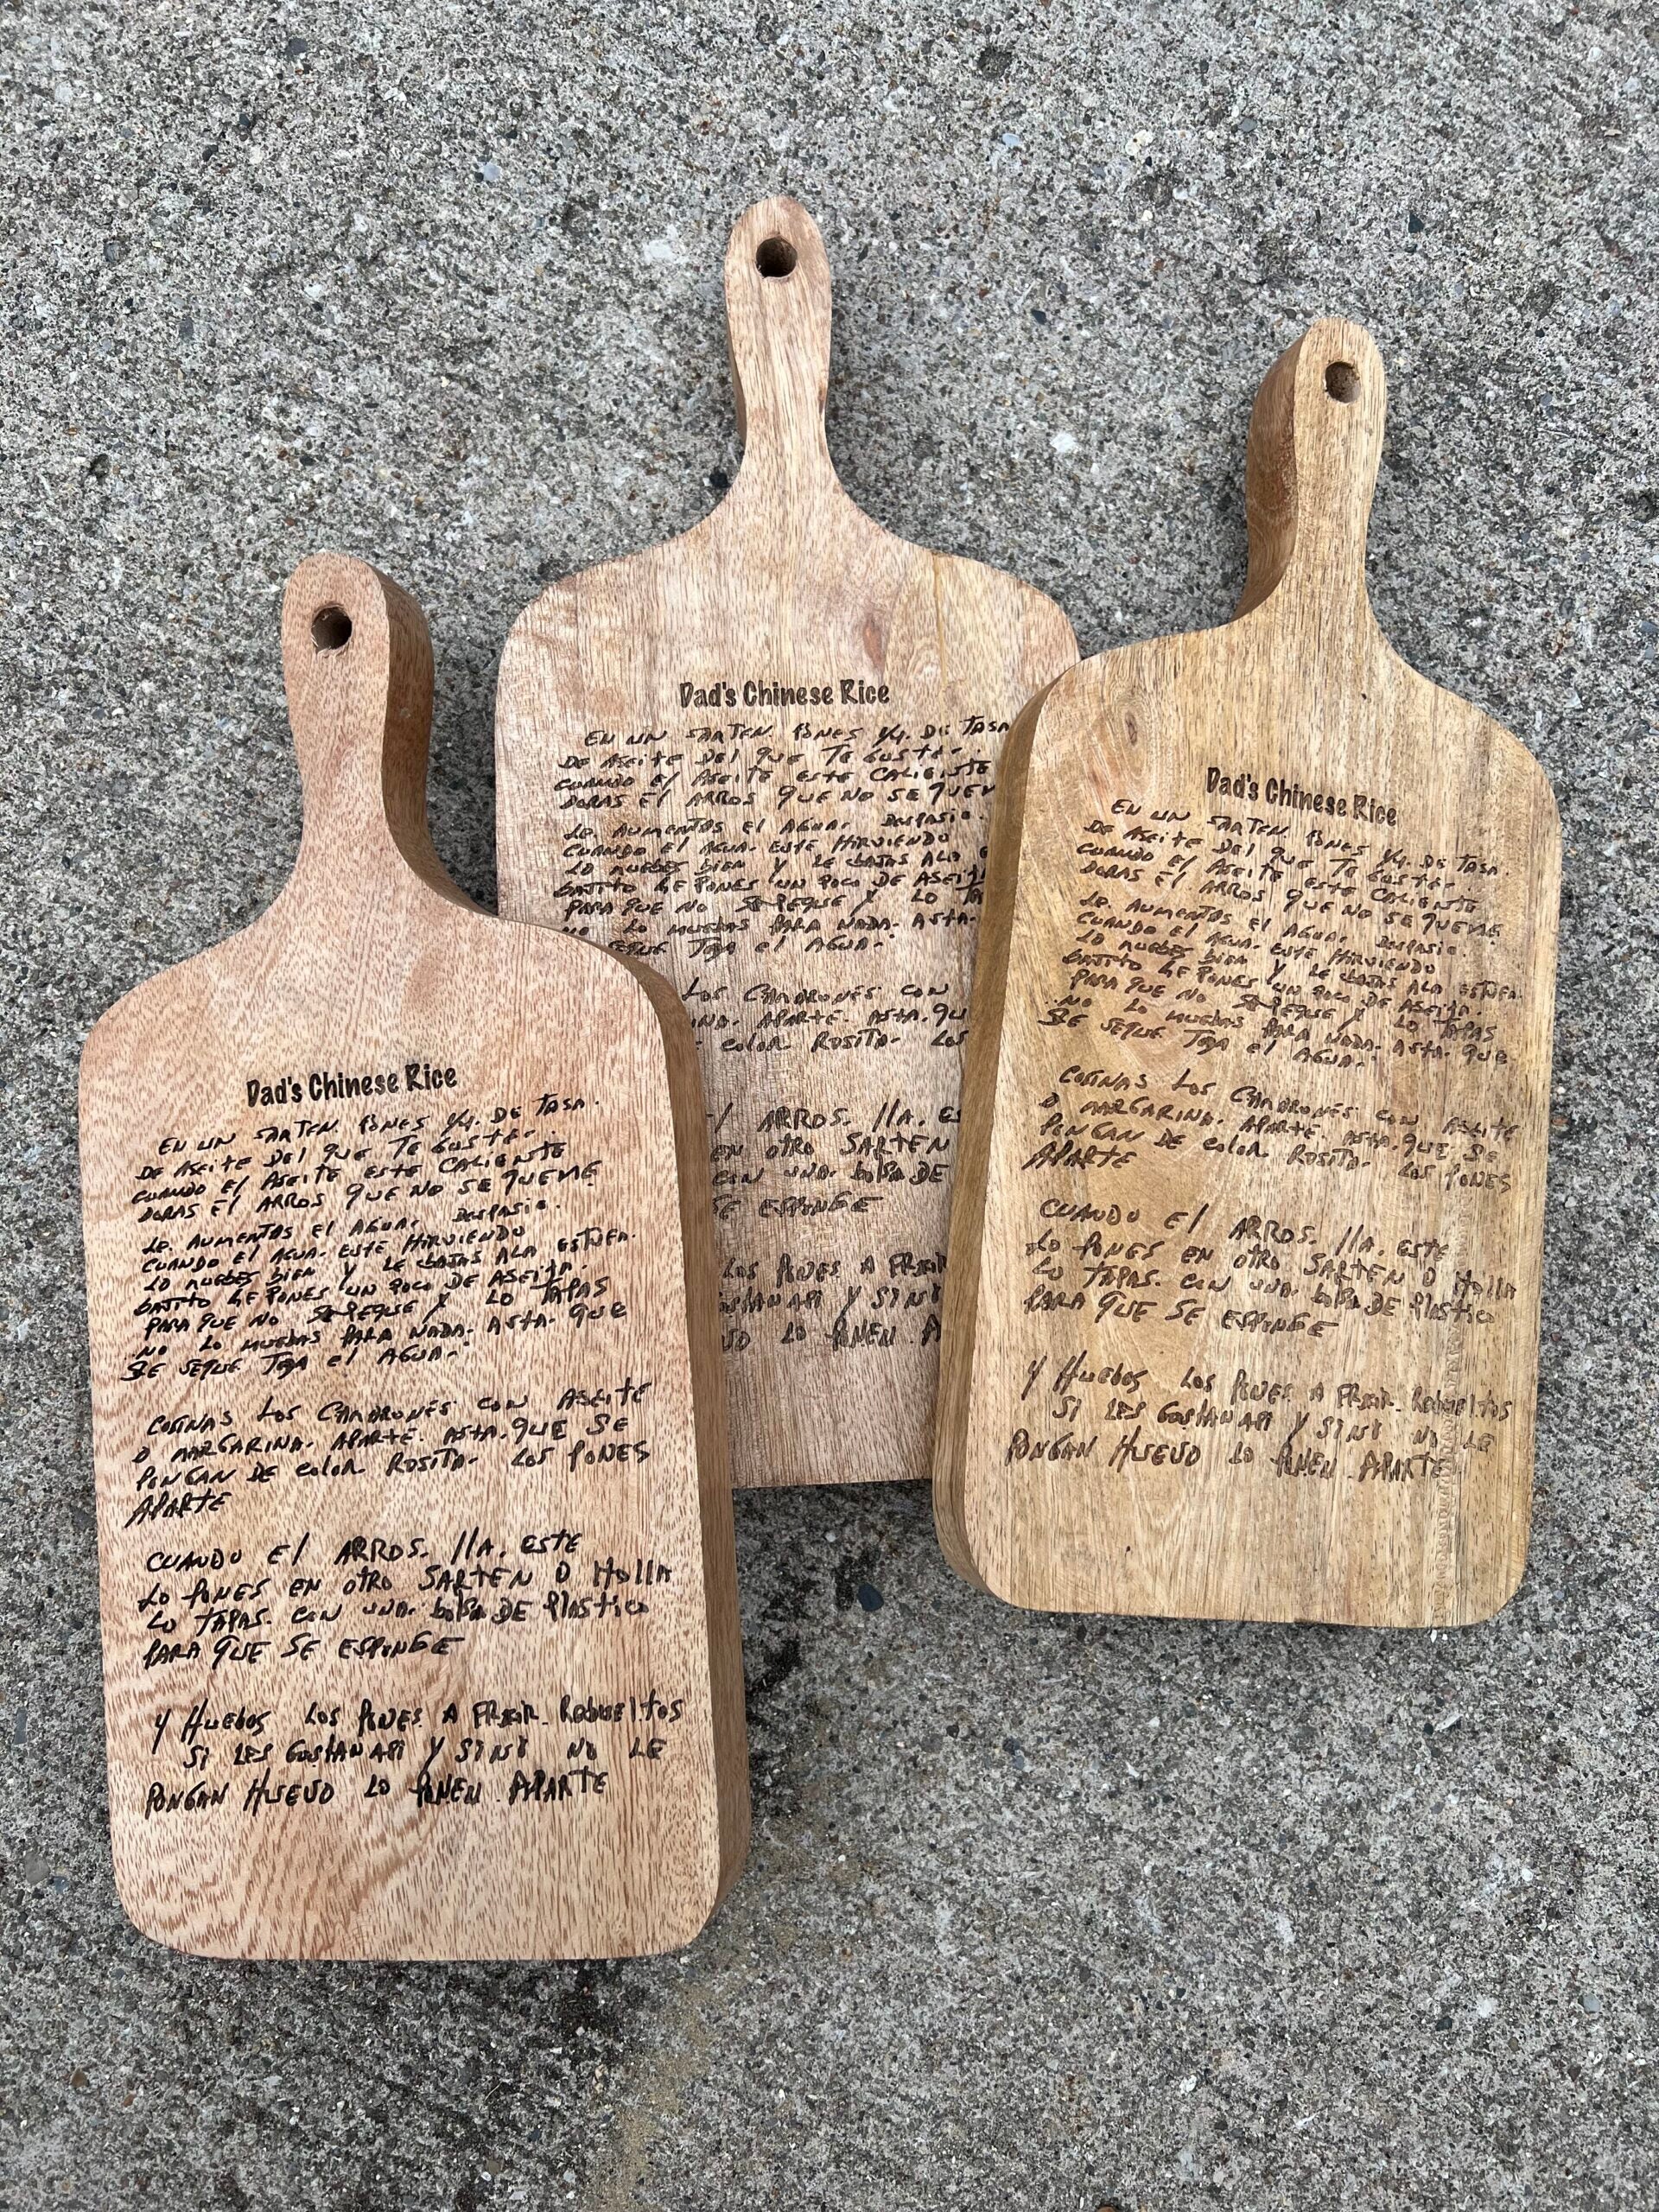 Dad's Chinese Rice
EN UN SARTEN PONES 1/4. DE TASA.
DE ASEITE DEL QUE TE GUSTE.
CUANDO El ASEITE ESTE CALIENTE
DORAS El ARROS QUE NO SE QUEME
LE AUMENTAS El AGUA. DESPASIO.
CUANDO El AGUA. ESTE HIRVIENDO
LO MUEBES BIEN Y LE BAJAS ALA ESTUFA.
BAJITO LE PONES UN POCO DE ASEITE.
PARA QUE NO SE PEQUE Y LO TAPAS
NO LO MUEBAS PARA NADA. ASTA. QUE
SE SEQUE TODA El AGUA.
COSINAS LOS CAMARONES CON ASEITE
O MARGARINA. APARTE. ASTA. QUE SE
PONGAN DE COLOR ROSITA. LOS PONES
APARTE
CUANDO El ARROS. llA. ESTE
LO PONES EN OTRO SARTEN O HOLLA
LO TAPAS. CON UNA. BOLSA DE PLASTICO
PARA QUE SE ESPONGE
Y HUEBOS LOS PONES A FREIR REBUELTOS
SI LES GUSTAN ASI Y SINO NO LE
PONGAN HUEVO LO PONEN APARTE
Dad's Chinese Rice
EN UN SARTEN PONES 1/4. DE TASA
DE ASEITE DEL QUE TE GUSTE.
CUANDO El ASEITE ESTE CALIENTE
DORAS El ARROS QUE NO SE QUEM
LE AUMENTAS El AGUA. DESPASIO.
CUANDO El AGUA. ESTE HIRVIENDO
LO MUEBES BIEN Y LE BAJAS ALA E
BAJITO LE PONES UN POCO DE ASEIT
PARA QUE NO SE PEQUE Y LO TA
NO LO MUEBAS PARA NADA. ASTA.
SEQUE TODA El AGUA.
LOS CAMARONES CON
INA. APARTE. ASTA. QU
E COLOR ROSITA. LOS
El ARROS. llA. ES
EN OTRO SARTEN
CON UNA. BOLSA DE
SE ESPONGE
LOS PONES A FREIR
GUSTAN ASI Y SINO
VO LO PONEN A
Dad's Chinese Rice
EN UN SARTEN PONES 1/4. DE TASA.
DE ASEITE DEL QUE TE GUSTE.
CUANDO El ASEITE ESTE CALIENTE
DORAS El ARROS QUE NO SE QUEME
LE AUMENTAS El AGUA. DESPASIO.
CUANDO El AGUA. ESTE HIRVIENDO
LO MUEBES BIEN Y LE BAJAS ALA ESTUFA.
BAJITO LE PONES UN POCO DE ASEITE.
PARA QUE NO SE PEQUE Y LO TAPAS
NO LO MUEBAS PARA NADA. ASTA. QUE
SE SEQUE TODA El AGUA.
COSINAS LOS CAMARONES CON ASEITE
O MARGARINA. APARTE. ASTA. QUE SE
PONGAN DE COLOR ROSITA. LOS PONES
APARTE
CUANDO El ARROS. llA. ESTE
LO PONES EN OTRO SARTEN O HOLLA
LO TAPAS. CON UNA. BOLSA DE PLASTICO
PARA QUE SE ESPONGE
Y HUEBOS LOS PONES A FREIR REBUELTOS
SI LES GUSTAN ASI Y SINO NO LE
PONGAN HUEVO LO PONEN APARTE